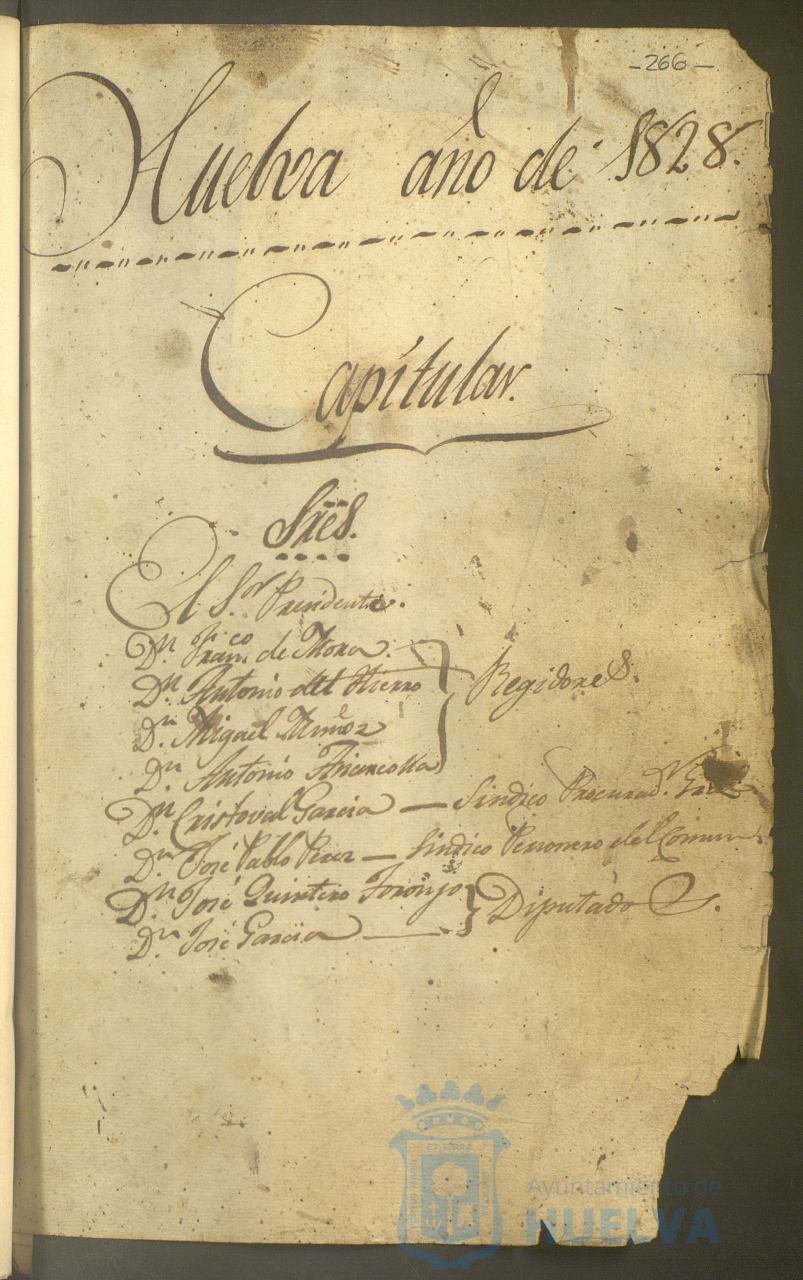 -266-
Huelva año de 1828.
Capitular.
Sres.
El Sor Presidente.
Dn Franco de Mora.
Dn Antonio del Hierro
Dn Miguel Muñoz
Dn Antonio
Regidores.
Dn Cristoval Garcia — Sindico Procurador Gral
Dn José Pablo Perez — Sindico Personero del Comun
Dn José Quintero Toronjo
Dn José Garcia
Diputados.
Ayuntamiento de
HUELVA